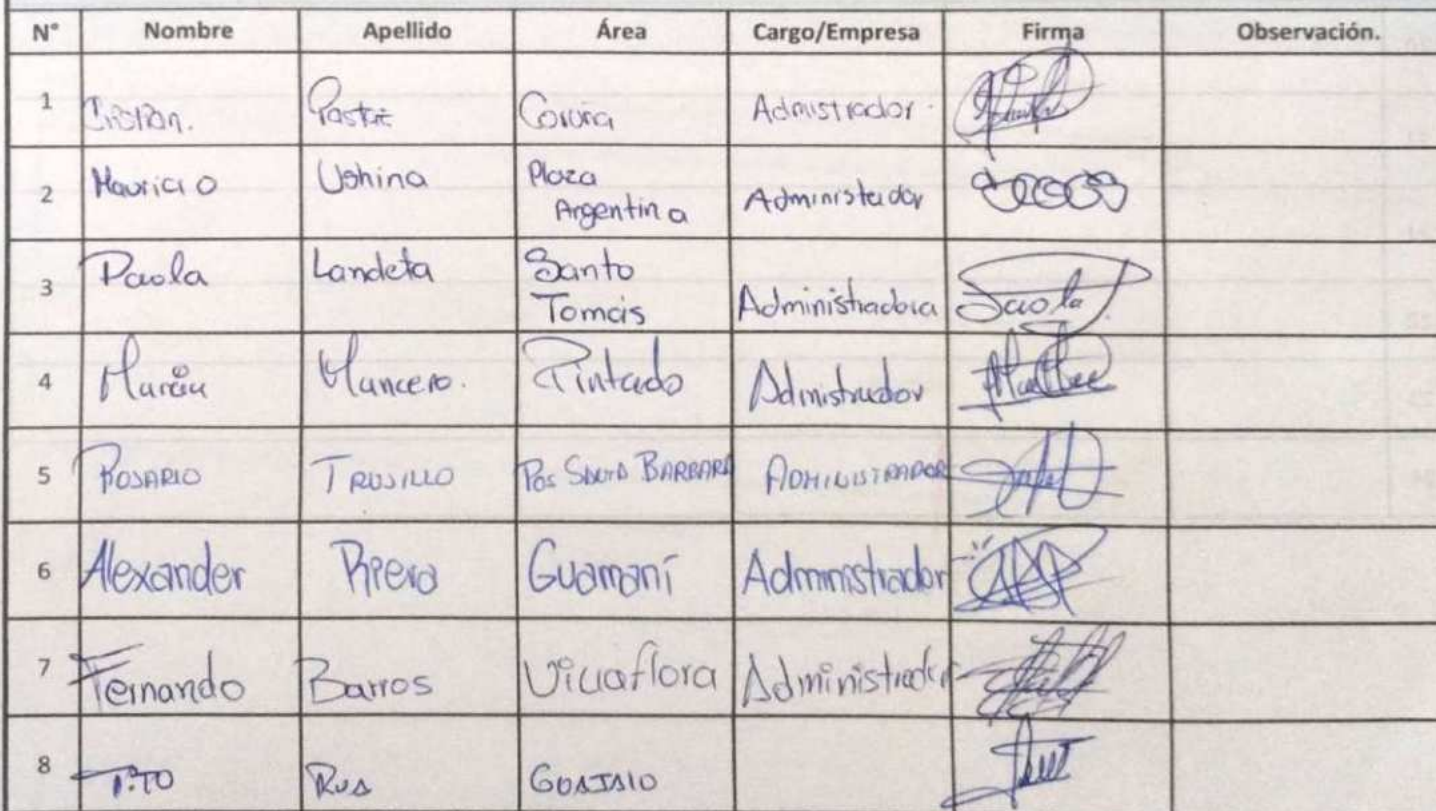 N° Nombre Apellido Área Cargo/Empresa Firma Observación.
1 Cristian. Admistrador.
2 Mauricio Ushina Plaza Argentina Administrador
3 Paola Landeta Santo Tomás Administradora Paola
4 Mancero. Pintado Admistrador
5 ROSARIO TRUJILLO SANTA BARBARA ADMINISTRADOR
6 Alexander Riera Guamaní Administrador
7 Fernando Barros Villaflora Administrador
8 TITO